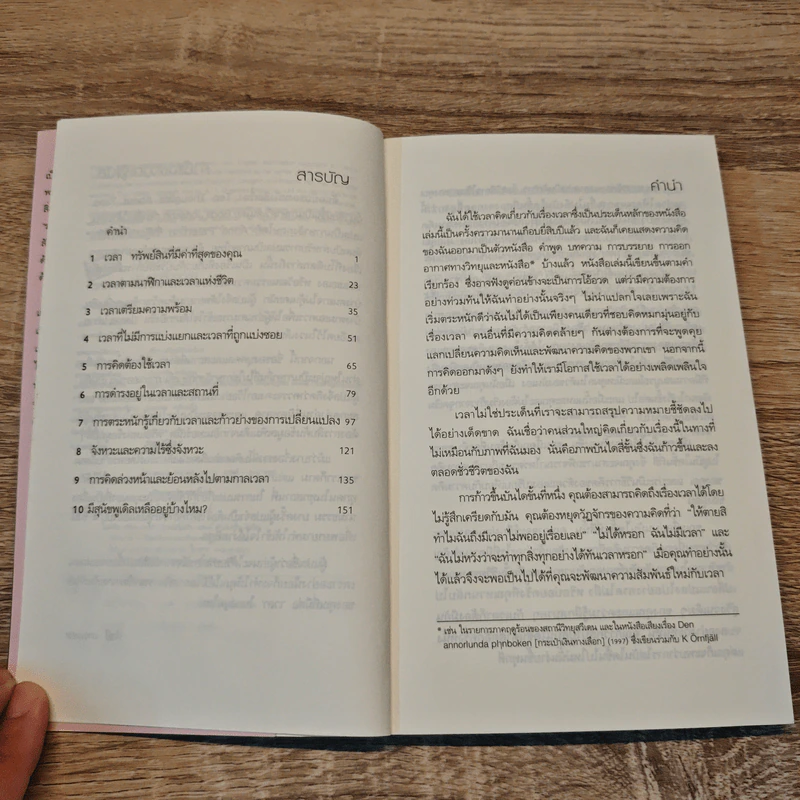 สารบัญ
คำนำ
1 เวลา ทรัพย์สินที่มีค่าที่สุดของคุณ 1
2 เวลาตามนาฬิกาและเวลาแห่งชีวิต 23
3 เวลาเตรียมความพร้อม 35
4 เวลาที่ไม่มีการแบ่งแยกและเวลาที่ถูกแบ่งซอย 51
5 การคิดต้องใช้เวลา 65
6 การดำรงอยู่ในเวลาและสถานที่ 79
7 การตระหนักรู้เกี่ยวกับเวลาและก้าวย่างของการเปลี่ยนแปลง 97
8 จังหวะและความไร้ซึ่งจังหวะ 121
9 การคิดล่วงหน้าและย้อนหลังไปตามกาลเวลา 135
10 มีสุนัขพูเดิลเหลืออยู่บ้างไหม? 151
คำนำ
ฉันได้ใช้เวลาคิดเกี่ยวกับเรื่องเวลาซึ่งเป็นประเด็นหลักของหนังสือ
เล่มนี้เป็นครั้งคราวมานานเกือบยี่สิบปีแล้ว และฉันก็เคยแสดงความคิด
ของฉันออกมาเป็นตัวหนังสือ คำพูด บทความ การบรรยาย การออก
อากาศทางวิทยุและหนังสือ* บ้างแล้ว หนังสือเล่มนี้เขียนขึ้นตามคำ
เรียกร้อง ซึ่งอาจฟังดูค่อนข้างจะเป็นการโอ้อวด แต่ว่ามีความต้องการ
อย่างท่วมท้นให้ฉันทำอย่างนั้นจริงๆ ไม่น่าแปลกใจเลยเพราะฉัน
เริ่มตระหนักดีว่าฉันไม่ได้เป็นเพียงคนเดียวที่ชอบคิดหมกมุ่นอยู่กับ
เรื่องเวลา คนอื่นที่มีความคิดคล้ายๆ กันต่างต้องการที่จะพูดคุย
แลกเปลี่ยนความคิดเห็นและพัฒนาความคิดของพวกเขา นอกจากนี้
การคิดออกมาดังๆ ยังทำให้เรามีโอกาสใช้เวลาได้อย่างเพลิดเพลินใจ
อีกด้วย
เวลาไม่ใช่ประเด็นที่เราจะสามารถสรุปความหมายชี้ชัดลงไป
ได้อย่างเด็ดขาด ฉันเชื่อว่าคนส่วนใหญ่คิดเกี่ยวกับเรื่องนี้ในทางที่
ไม่เหมือนกับภาพที่ฉันมอง นั่นคือภาพบันไดสี่ขั้นซึ่งฉันก้าวขึ้นและลง
ตลอดชั่วชีวิตของฉัน
การก้าวขึ้นบันไดขั้นที่หนึ่ง คุณต้องสามารถคิดถึงเรื่องเวลาได้โดย
ไม่รู้สึกเครียดกับมัน คุณต้องหยุดวัฏจักรของความคิดที่ว่า "ให้ตายสิ
ทำไมฉันถึงมีเวลาไม่พออยู่เรื่อยเลย" "ไม่ได้หรอก ฉันไม่มีเวลา" และ
"ฉันไม่หวังว่าจะทำทุกสิ่งทุกอย่างได้ทันเวลาหรอก" เมื่อคุณทำอย่างนั้น
ได้แล้วจึงจะพอเป็นไปได้ที่คุณจะพัฒนาความสัมพันธ์ใหม่กับเวลา
* เช่น ในรายการภาคฤดูร้อนของสถานีวิทยุสวีเดน และในหนังสือเสียงเรื่อง Den
annorlunda [กระเป๋าเงินทางเลือก] (1997) ซึ่งเขียนร่วมกับ K Örnfjäll